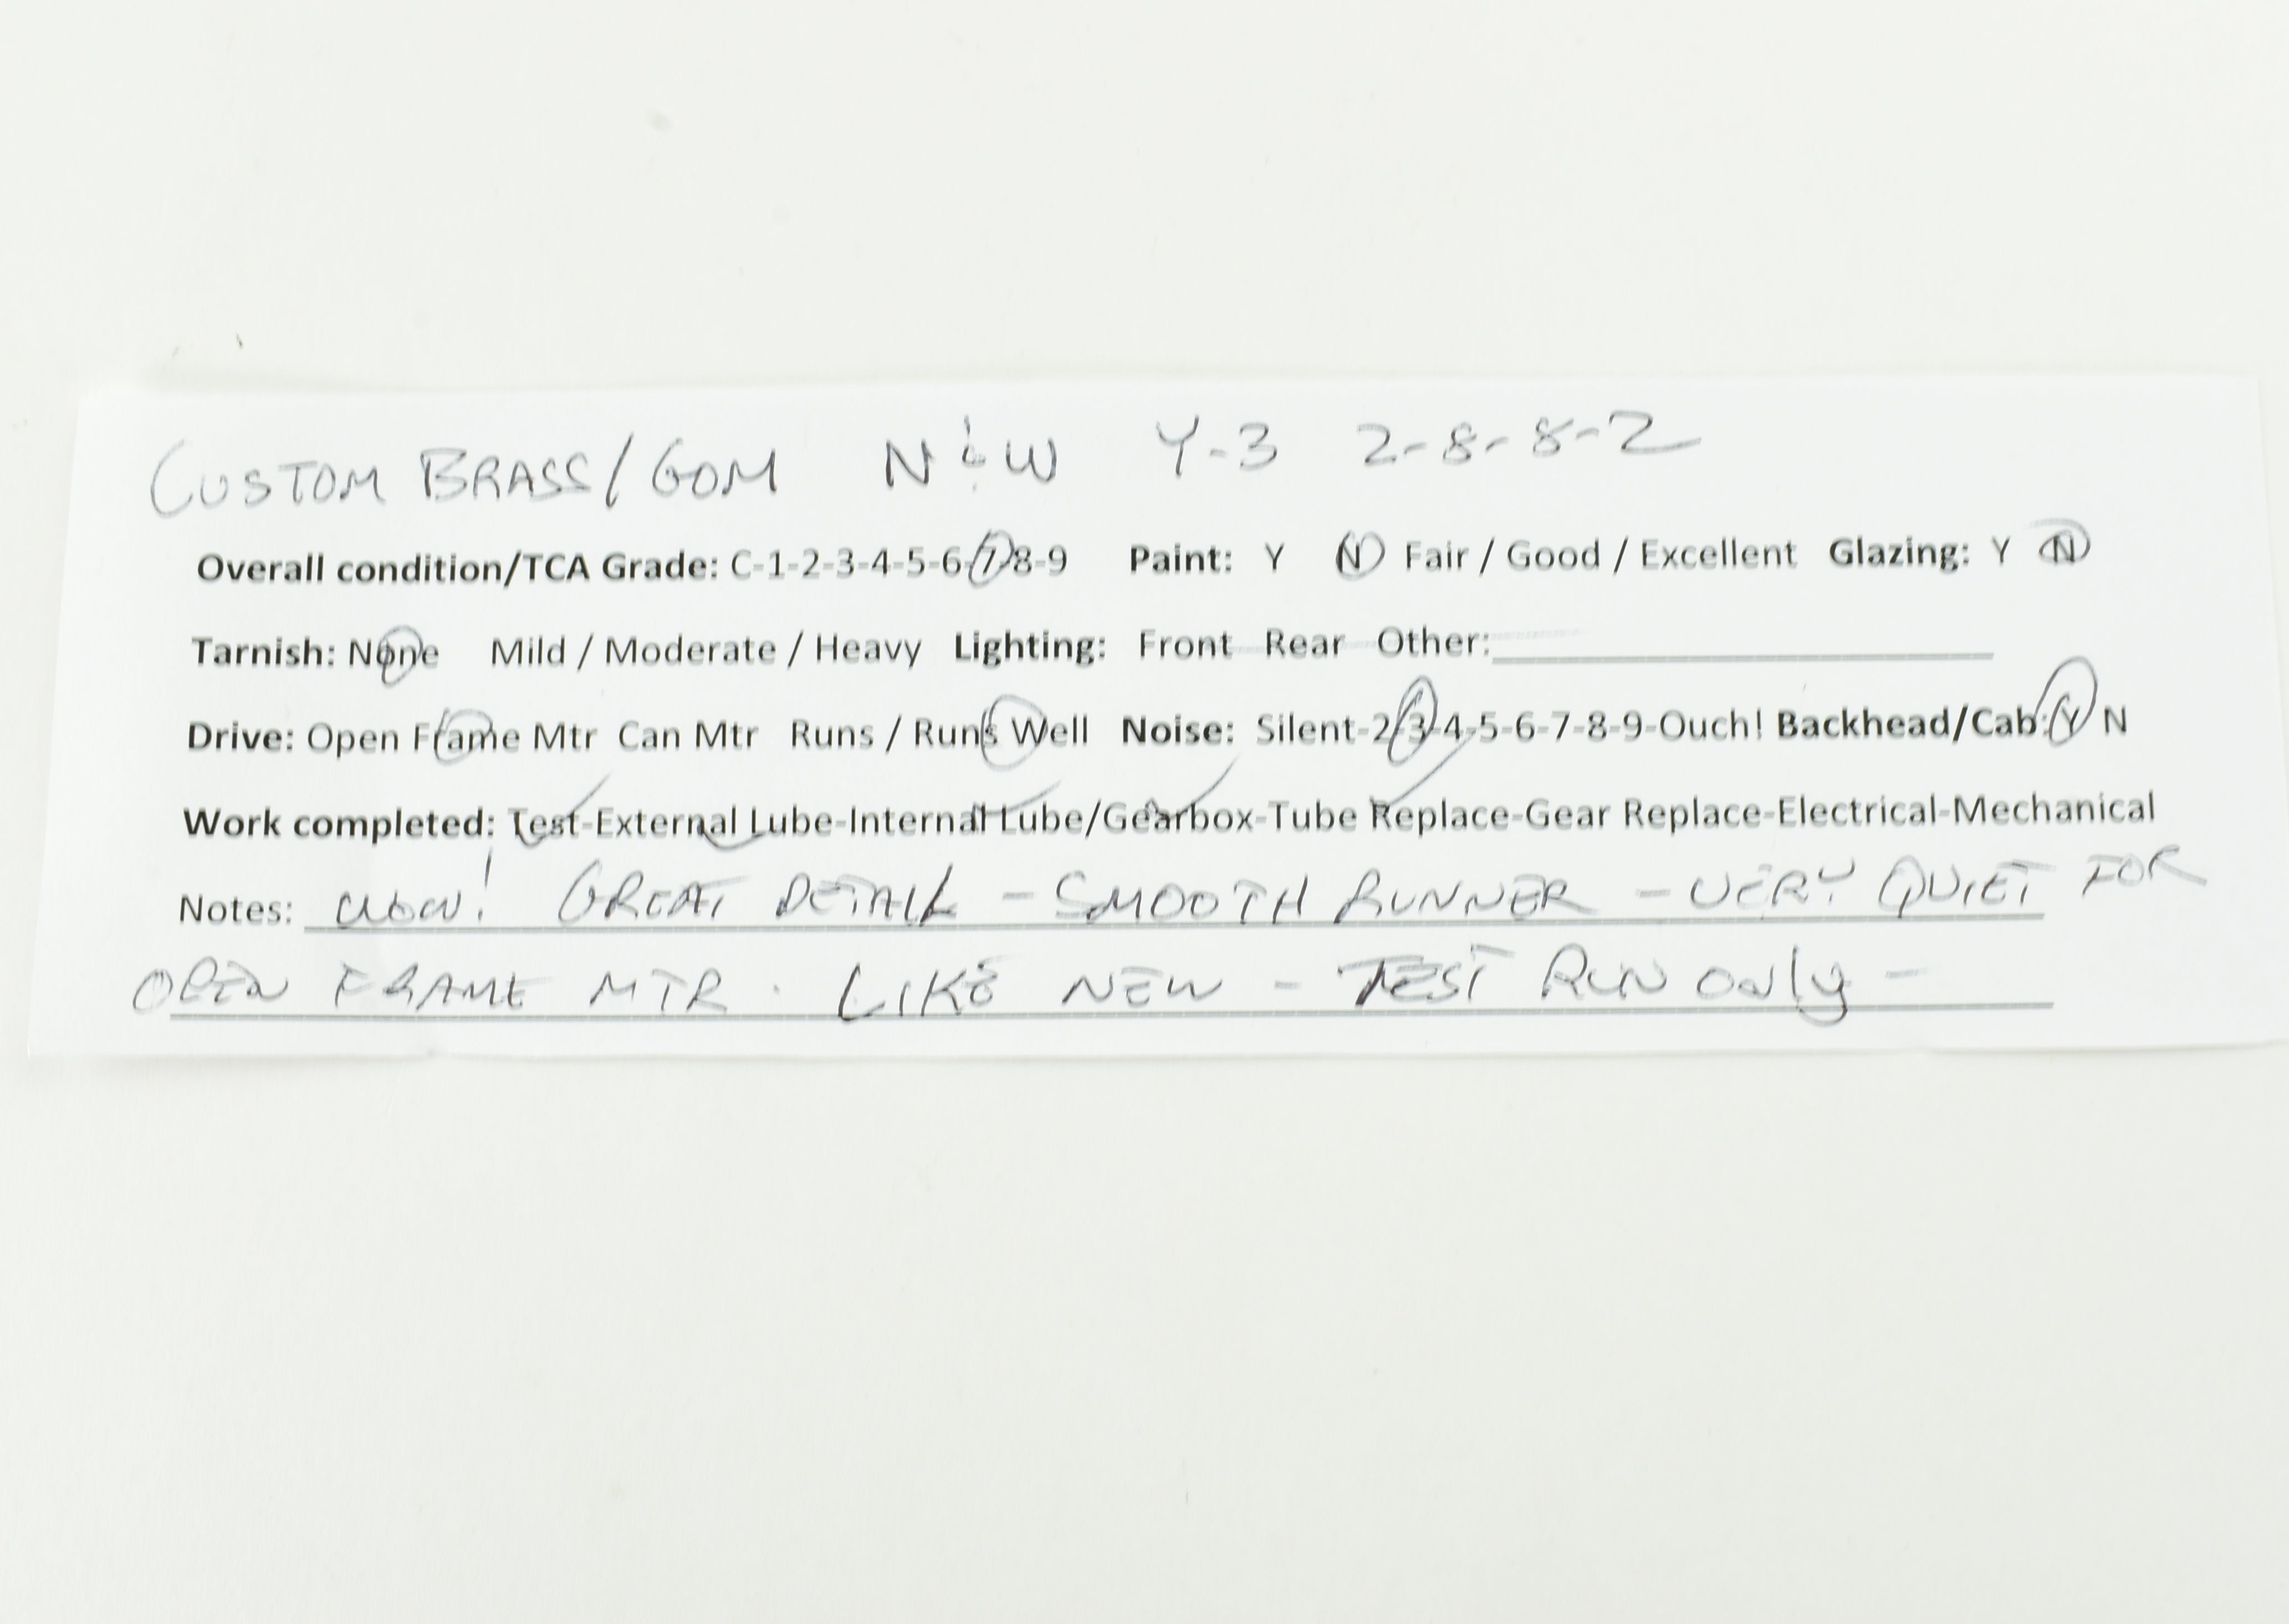 CUSTOM BRASS/GOM N&W Y-3 2-8-8-2
Overall condition/TCA Grade: C-1-2-3-4-5-6-7-8-9 Paint: Y N Fair / Good / Excellent Glazing: Y N
Tarnish: None Mild / Moderate / Heavy Lighting: Front Rear Other:
Drive: Open Frame Mtr Can Mtr Runs / Runs Well Noise: Silent-2-3-4-5-6-7-8-9-Ouch! Backhead/Cab: Y N
Work completed: Test-External Lube-Internal Lube/Gearbox-Tube Replace-Gear Replace-Electrical-Mechanical
Notes: WOW! GREAT DETAIL - SMOOTH RUNNER - VERY QUIET FOR
OPEN FRAME MTR. LIKE NEW - TEST RUN ONLY -